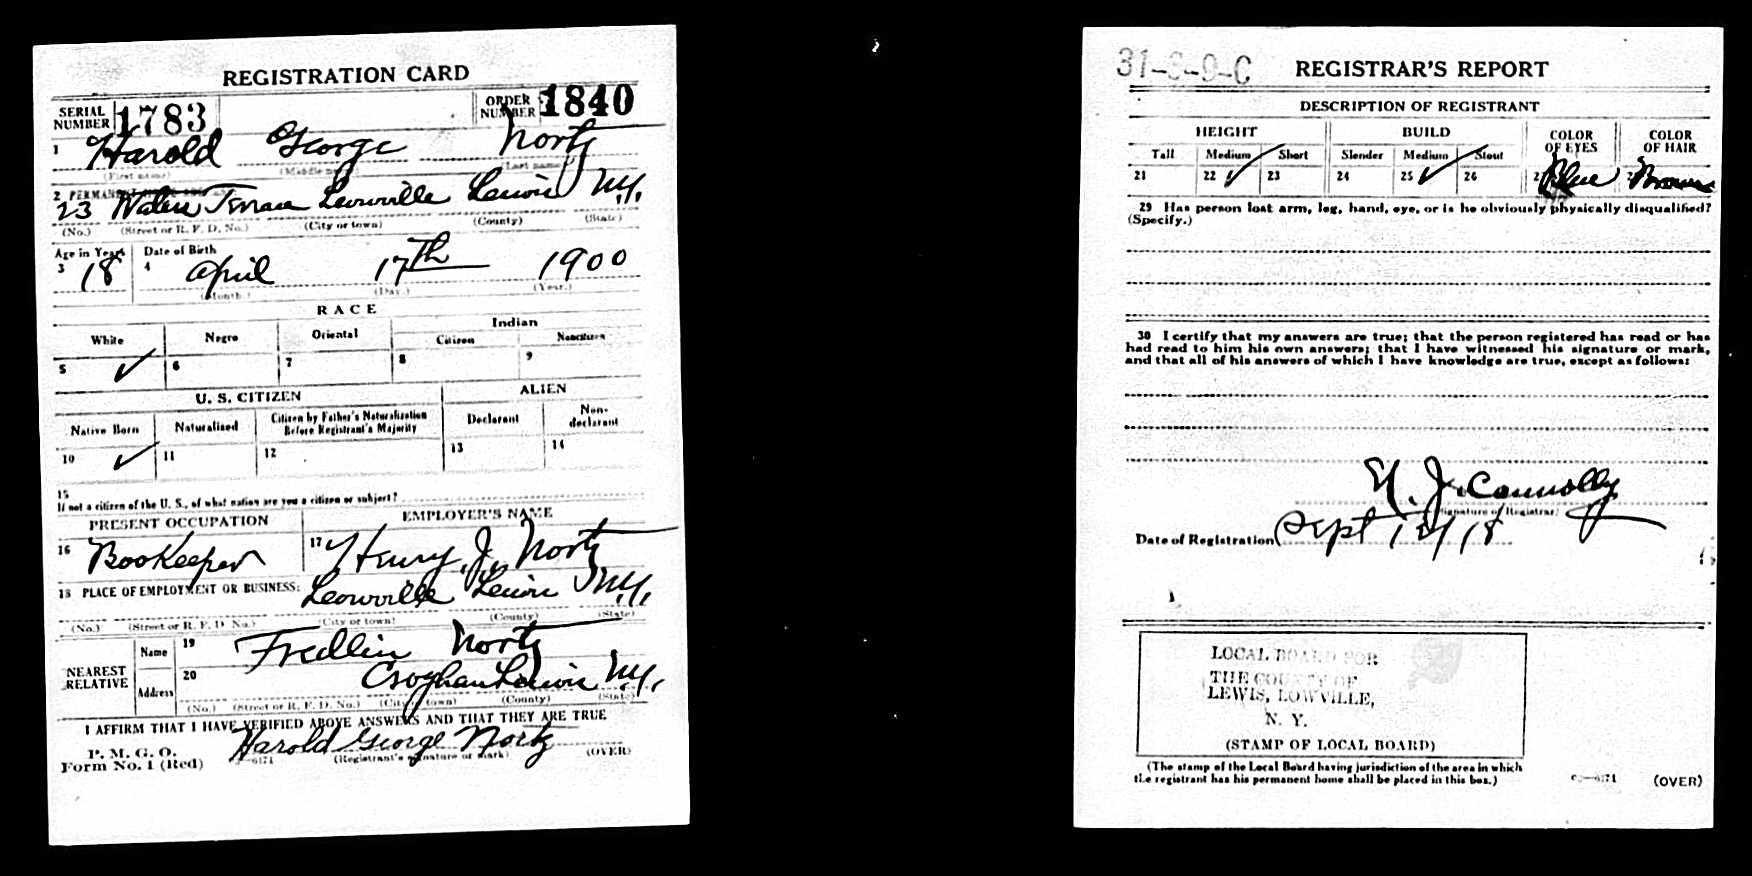 REGISTRATION CARD
SERIAL NUMBER 1783 ORDER NUMBER 1840
1 Harold George Nortz
(First name) (Middle name) (Last name)
2 PERMANENT
23 Water Terrace Lowville Lewis N.Y.
(No.) (Street or R. F. D. No.) (City or town) (County) (State)
Age in Years Date of Birth
3 18 4 April 17th 1900
(Month.) (Day.) (Year.)
RACE
White Negro Oriental Indian
Citizen Noncitizen
5 ✓ 6 7 8 9
U. S. CITIZEN ALIEN
Native Born Naturalized Citizen by Father's Naturalization Before Registrant's Majority Declarant Non-declarant
10 ✓ 11 12 13 14
15
If not a citizen of the U. S., of what nation are you a citizen or subject?
PRESENT OCCUPATION EMPLOYER'S NAME
16 Bookkeeper 17 Henry J. Nortz
18 PLACE OF EMPLOYMENT OR BUSINESS:
Lowville Lewis N.Y.
(No.) (Street or R. F. D. No.) (City or town) (County) (State)
NEAREST RELATIVE
Name 19 Fredlin Nortz
Address 20 Croghan Lewis N.Y.
(No.) (Street or R. F. D. No.) (City or town) (County) (State)
I AFFIRM THAT I HAVE VERIFIED ABOVE ANSWERS AND THAT THEY ARE TRUE
P. M. G. O.
Form No. 1 (Red) Harold George Nortz
(Registrant's signature or mark) (OVER)
REGISTRAR'S REPORT
DESCRIPTION OF REGISTRANT
HEIGHT BUILD COLOR OF EYES COLOR OF HAIR
Tall Medium Short Slender Medium Stout
21 22 ✓ 23 24 25 ✓ 26 Blue Brown
29 Has person lost arm, leg, hand, eye, or is he obviously physically disqualified?
(Specify.)
30 I certify that my answers are true; that the person registered has read or has
had read to him his own answers; that I have witnessed his signature or mark,
and that all of his answers of which I have knowledge are true, except as follows:
J. Connolly
(Signature of Registrar)
Date of Registration Sept 12/18
LOCAL BOARD FOR
THE COUNTY OF
LEWIS, LOWVILLE,
N. Y.
(STAMP OF LOCAL BOARD)
(The stamp of the Local Board having jurisdiction of the area in which
the registrant has his permanent home shall be placed in this box.)
(OVER)